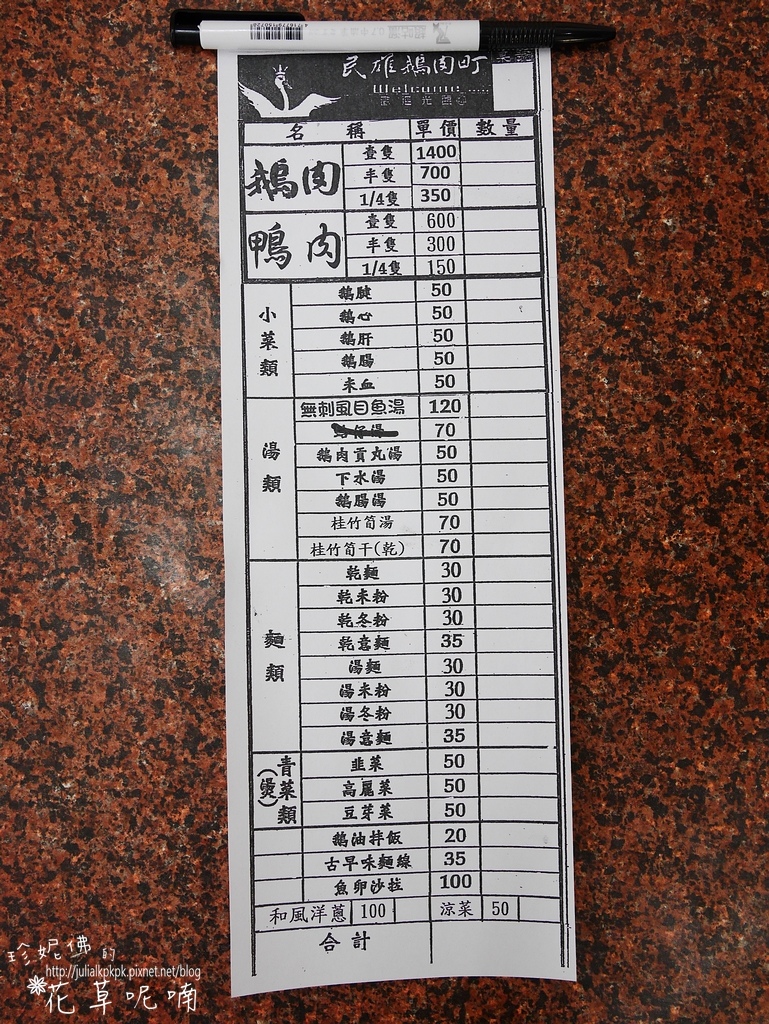 民雄鵝肉町
Welcome......
歡迎光臨
名稱 單價 數量
鵝肉
壹隻 1400
半隻 700
1/4隻 350
鴨肉
壹隻 600
半隻 300
1/4隻 150
小菜類
鵝腱 50
鵝心 50
鵝肝 50
鵝腸 50
米血 50
湯類
無刺虱目魚湯 120
70
鵝肉貢丸湯 50
下水湯 50
鵝腸湯 50
桂竹筍湯 70
桂竹筍干(乾) 70
麵類
乾麵 30
乾米粉 30
乾冬粉 30
乾意麵 35
湯麵 30
湯米粉 30
湯冬粉 30
湯意麵 35
青菜類
(燙)
韭菜 50
高麗菜 50
豆芽菜 50
鵝油拌飯 20
古早味麵線 35
魚卵沙拉 100
和風洋蔥 100 涼菜 50
合計
珍妮佛的
http://julialkpkpk.pixnet.net/blog
花草呢喃